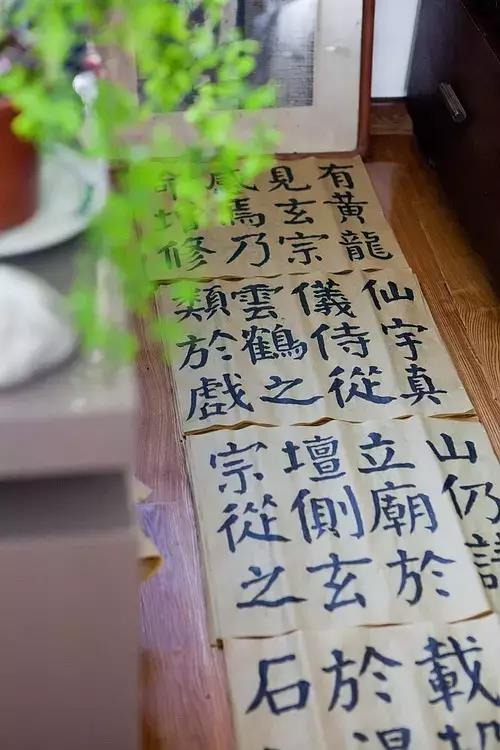 有黃龍
見玄宗
感焉乃
命增修
仙宇真
儀侍從
雲鶴之
類於戲
山仍請
立廟於
壇側玄
宗從之
載
於
石